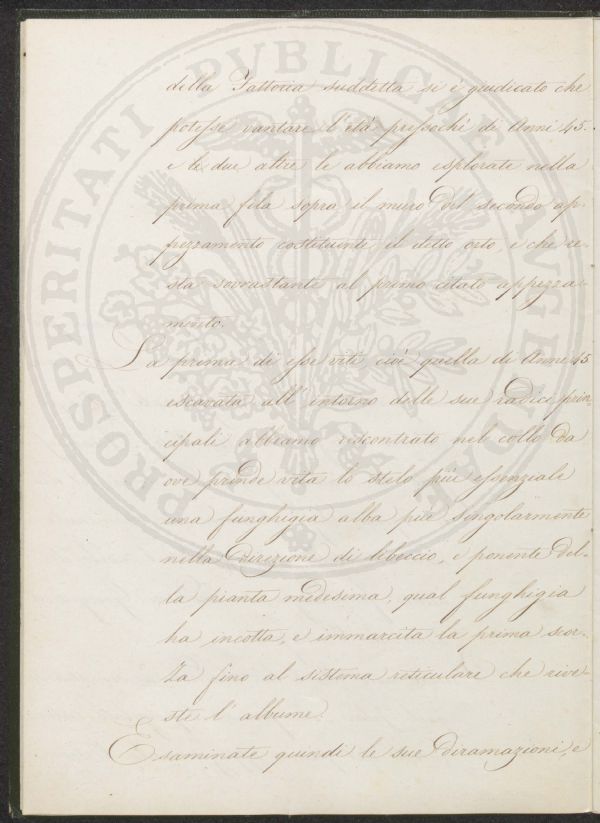 della Fattoria suddetta si è giudicato che
potesse vantare l'età pressochè di Anni 45.
e le due altre le abbiamo esplorate nella
prima fila sopra il muro del secondo ap-
pezzamento costituente il detto orto, e che re-
sta sovrastante al primo citato appezza-
mento.
La prima di esse viti, cioè quella di Anni 45
escavata all'intorno delle sue radici prin-
cipali abbiamo riscontrato nel collo da
ove prende vita lo stelo più essenziale
una funghigia alba più singolarmente
nella direzione di libeccio, e ponente del-
la pianta medesima, qual funghigia
ha incotta, e immarcita la prima scor-
za fino al sistema reticulare che rive-
ste l'albume.
Esaminate quindi le sue diramazioni, e
PROSPERITATI PUBLICAE AUGENDAE